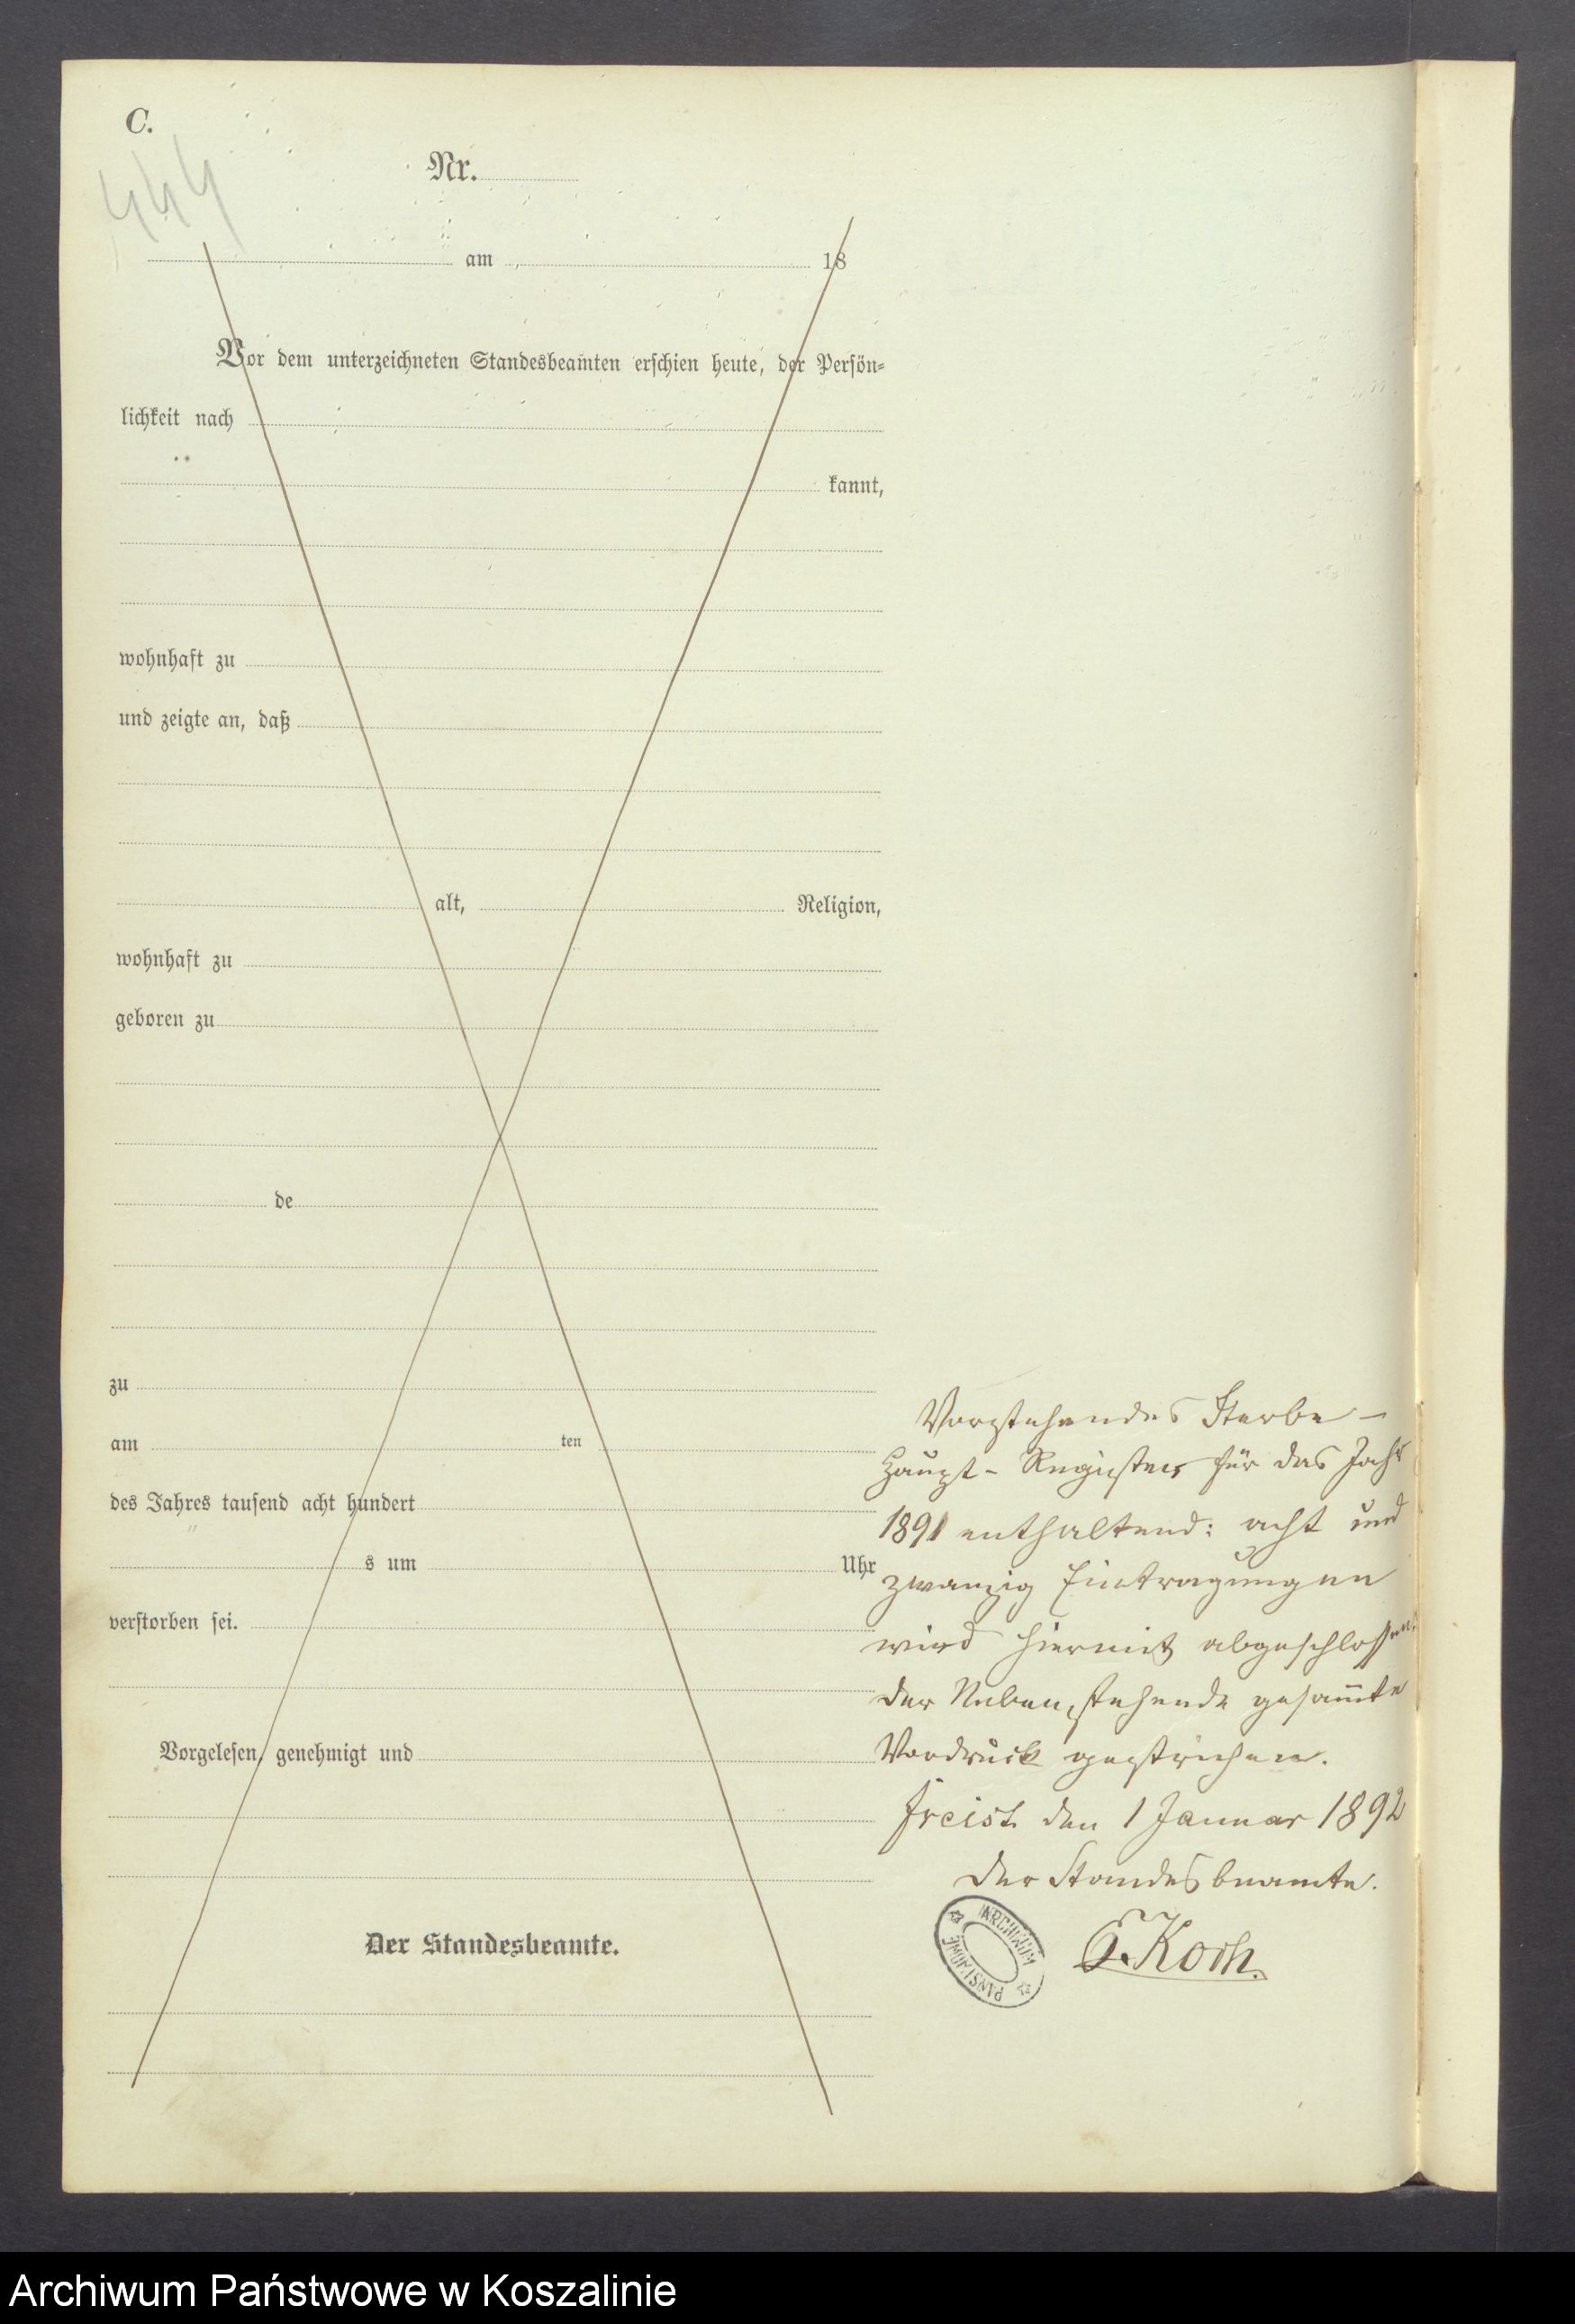 C.
444
Nr.
am 18
Vor dem unterzeichneten Standesbeamten erschien heute, der Persön=
lichkeit nach
kannt,
wohnhaft zu
und zeigte an, daß
alt, Religion,
wohnhaft zu
geboren zu
de
zu
am ten
des Jahres tausend acht hundert
s um Uhr
verstorben sei.
Vorgelesen, genehmigt und
Der Standesbeamte.
Vorstehendes Sterbe-
Haupt-Register für das Jahr
1891 enthaltend: acht und
zwanzig Eintragungen
wird hiermit abgeschlossen.
Der Nebenstehende gesam̅te
Vordruck gestrichen.
Freist den 1 Januar 1892
Der Standesbeamte.
E. Koch.
ARCHIWUM PAŃSTWOWE
Archiwum Państwowe w Koszalinie